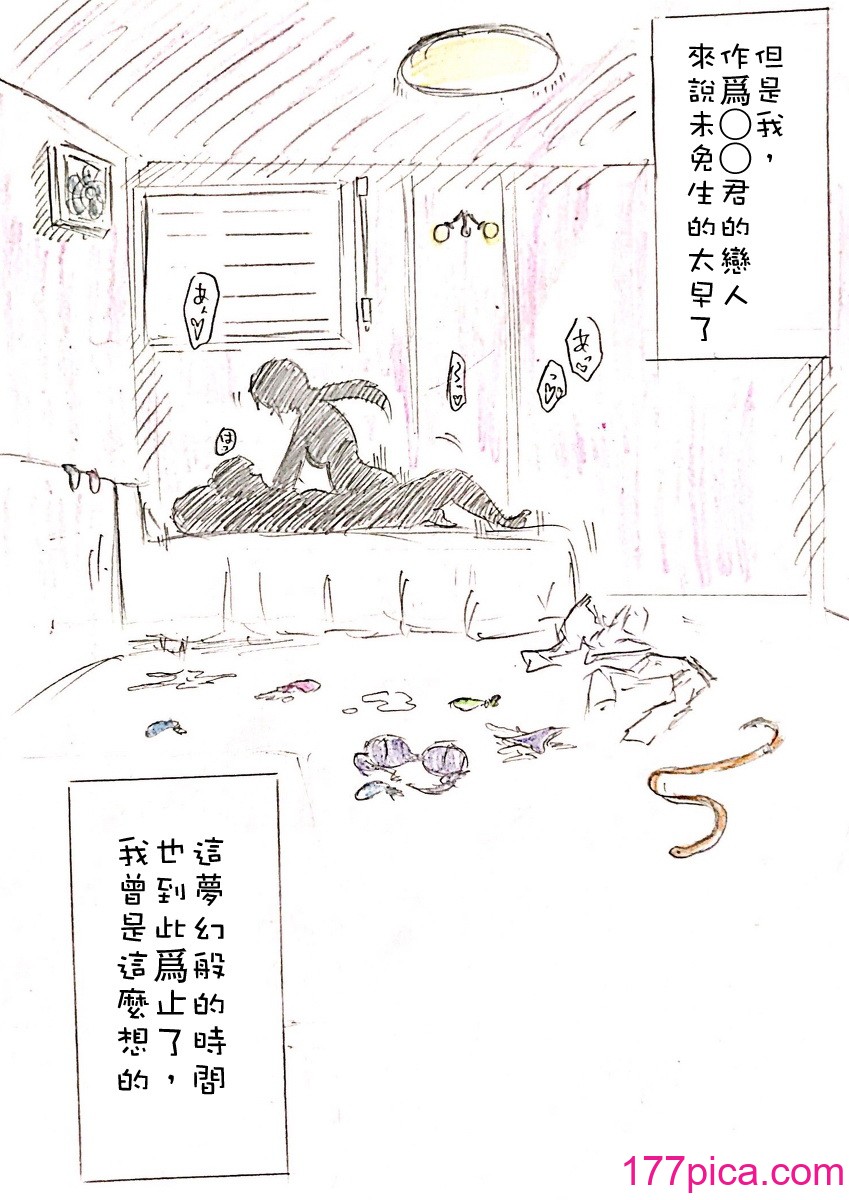 但是我，
作爲〇〇君的戀人
來說未免生的太早了
あぁ♡
あっ♡
はっ
這夢幻般的時間
也到此爲止了，
我曾是這麼想的
177pica.com